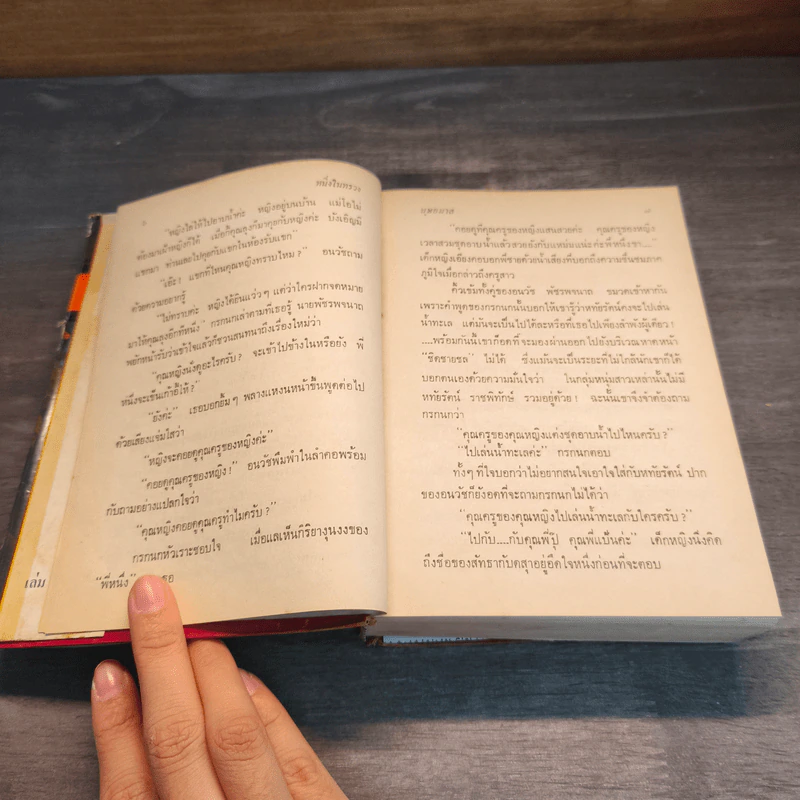 หนึ่งในทรวง
"หญิงใต้ให้ไปอาบน้ำค่ะ หญิงอยู่บนบ้าน แม่ไอไม่
ต้องมาเฝ้าหญิงก็ได้ เมื่อกี้คุณลุงก็มาคุยกับหญิงค่ะ บังเอิญมี
แขกมา ท่านเลยไปคุยกับแขกในห้องรับแขก"
"เอ๊ะ! แขกที่ไหนคุณหญิงทราบไหม?" อนวัชถาม
ด้วยความอยากรู้
"ไม่ทราบค่ะ หญิงได้ยินแว่วๆ แต่ว่าใครฝากจดหมาย
มาให้คุณลุงอีกทีหนึ่ง" กรกนกเล่าตามที่เธอรู้ นายพัชรพจนาถ
พยักหน้ารับว่าเข้าใจแล้วก็ชวนสนทนาถึงเรื่องใหม่ว่า
"คุณหญิงนั่งดูอะไรครับ? จะเข้าไปข้างในหรือยัง พี่
หนึ่งจะเข็นเก้าอี้ให้?"
"ยังค่ะ" เธอบอกยิ้มๆ พลางแหงนหน้าขึ้นพูดต่อไป
ด้วยเสียงแจ่มใสว่า
"หญิงจะคอยดูคุณครูของหญิงค่ะ"
"คอยดูคุณครูของหญิง!" อนวัชพึมพำในลำคอพร้อม
กับถามอย่างแปลกใจว่า
"คุณหญิงคอยดูคุณครูทำไมครับ?"
กรกนกหัวเราะชอบใจ เมื่อแลเห็นกิริยางุนงงของ
"พี่หนึ่ง"
เล่ม
บุษยมาส
"คอยดูที่คุณครูของหญิงแสนสวยค่ะ คุณครูของหญิง
เวลาสวมชุดอาบน้ำแล้วสวยยังกับแหม่มแน่ะค่ะพี่หนึ่งขา...."
เด็กหญิงเอียงคอบอกพี่ชายด้วยน้ำเสียงที่บอกถึงความชื่นชมภาค
ภูมิใจเมื่อกล่าวถึงครูสาว
คิ้วเข้มทั้งคู่ของอนวัช พัชรพจนาถ ขมวดเข้าหากัน
เพราะคำพูดของกรกนกนั้นบอกให้เขารู้ว่าหทัยรัตน์คงจะไปเล่น
น้ำทะเล แต่มันจะเป็นไปได้ละหรือที่เธอไปเพียงลำพังผู้เดียว!
....พร้อมกันนี้เขาก็อดที่จะมองผ่านออกไปยังบริเวณหาดหน้า
"ชิดชายชล" ไม่ได้ ซึ่งแม้นจะเป็นระยะที่ไม่ใกล้นักเขาก็ได้
บอกตนเองด้วยความมั่นใจว่า ในกลุ่มหนุ่มสาวเหล่านั้นไม่มี
หทัยรัตน์ ราชพิทักษ์ รวมอยู่ด้วย! ฉะนั้นเขาจึงจำต้องถาม
กรกนกว่า
"คุณครูของคุณหญิงแต่งชุดอาบน้ำไปไหนครับ?"
"ไปเล่นน้ำทะเลค่ะ" กรกนกตอบ
ทั้งๆ ที่ใจบอกว่าไม่อยากสนใจเอาใจใส่กับหทัยรัตน์ ปาก
ของอนวัชก็ยังอดที่จะถามกรกนกไม่ได้ว่า
"คุณครูของคุณหญิงไปเล่นน้ำทะเลกับใครครับ?"
"ไปกับ....กับคุณพี่ปุ๊ คุณพี่แป๊นค่ะ" เด็กหญิงนิ่งคิด
ถึงชื่อของสัทธากับดสุาอยู่อึดใจหนึ่งก่อนที่จะตอบ